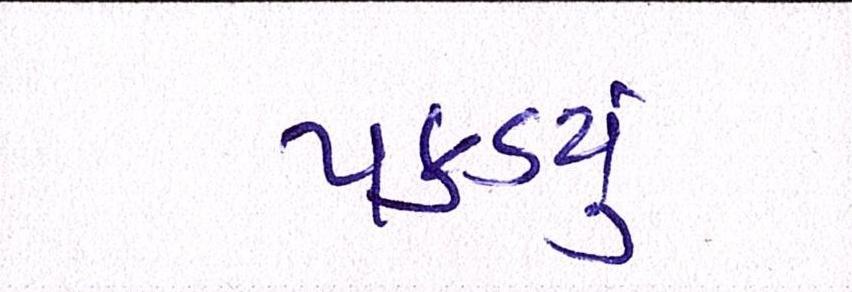 પકડયું